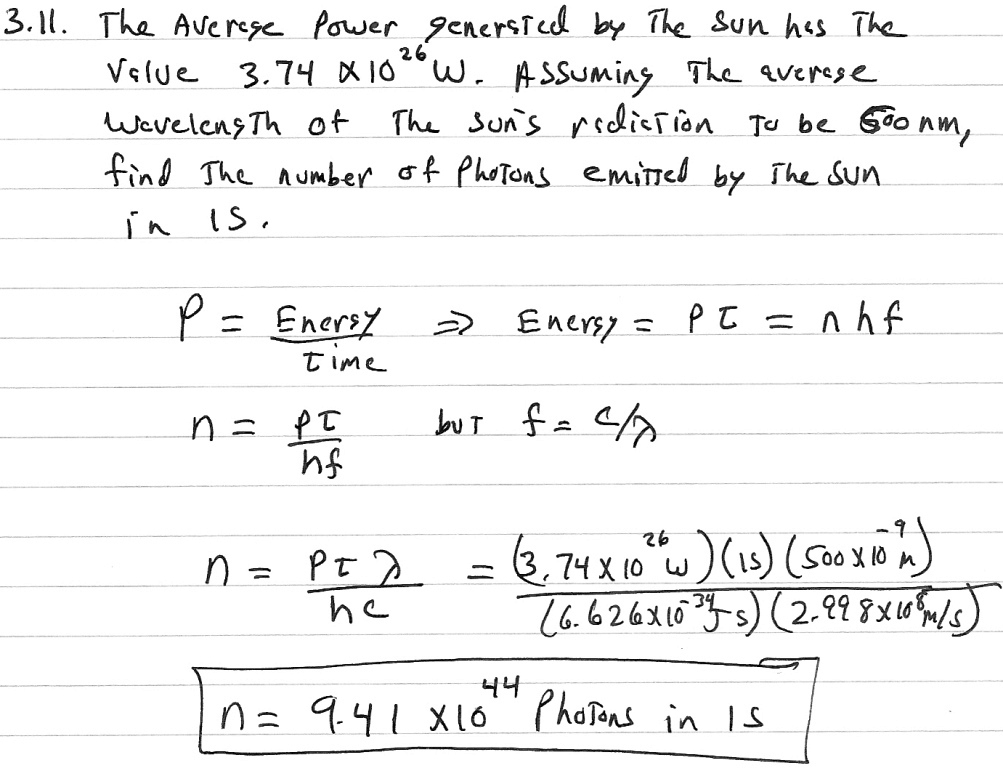 3.11. The Average Power generated by The Sun has The
Value 3.74 X10^26 W. Assuming The average
Wavelength of The Sun's radiation To be 500 nm,
find The number of Photons emitted by The Sun
in 1S.
P = Energy / Time ⇒ Energy = Pt = nhf
n = Pt / hf but f = c/λ
n = Ptλ / hc = (3.74 X 10^26 W)(1s)(500 X 10^-9 m) / (6.626X10^-34 J-s)(2.998X10^8 m/s)
n = 9.41 X10^44 Photons in 1s